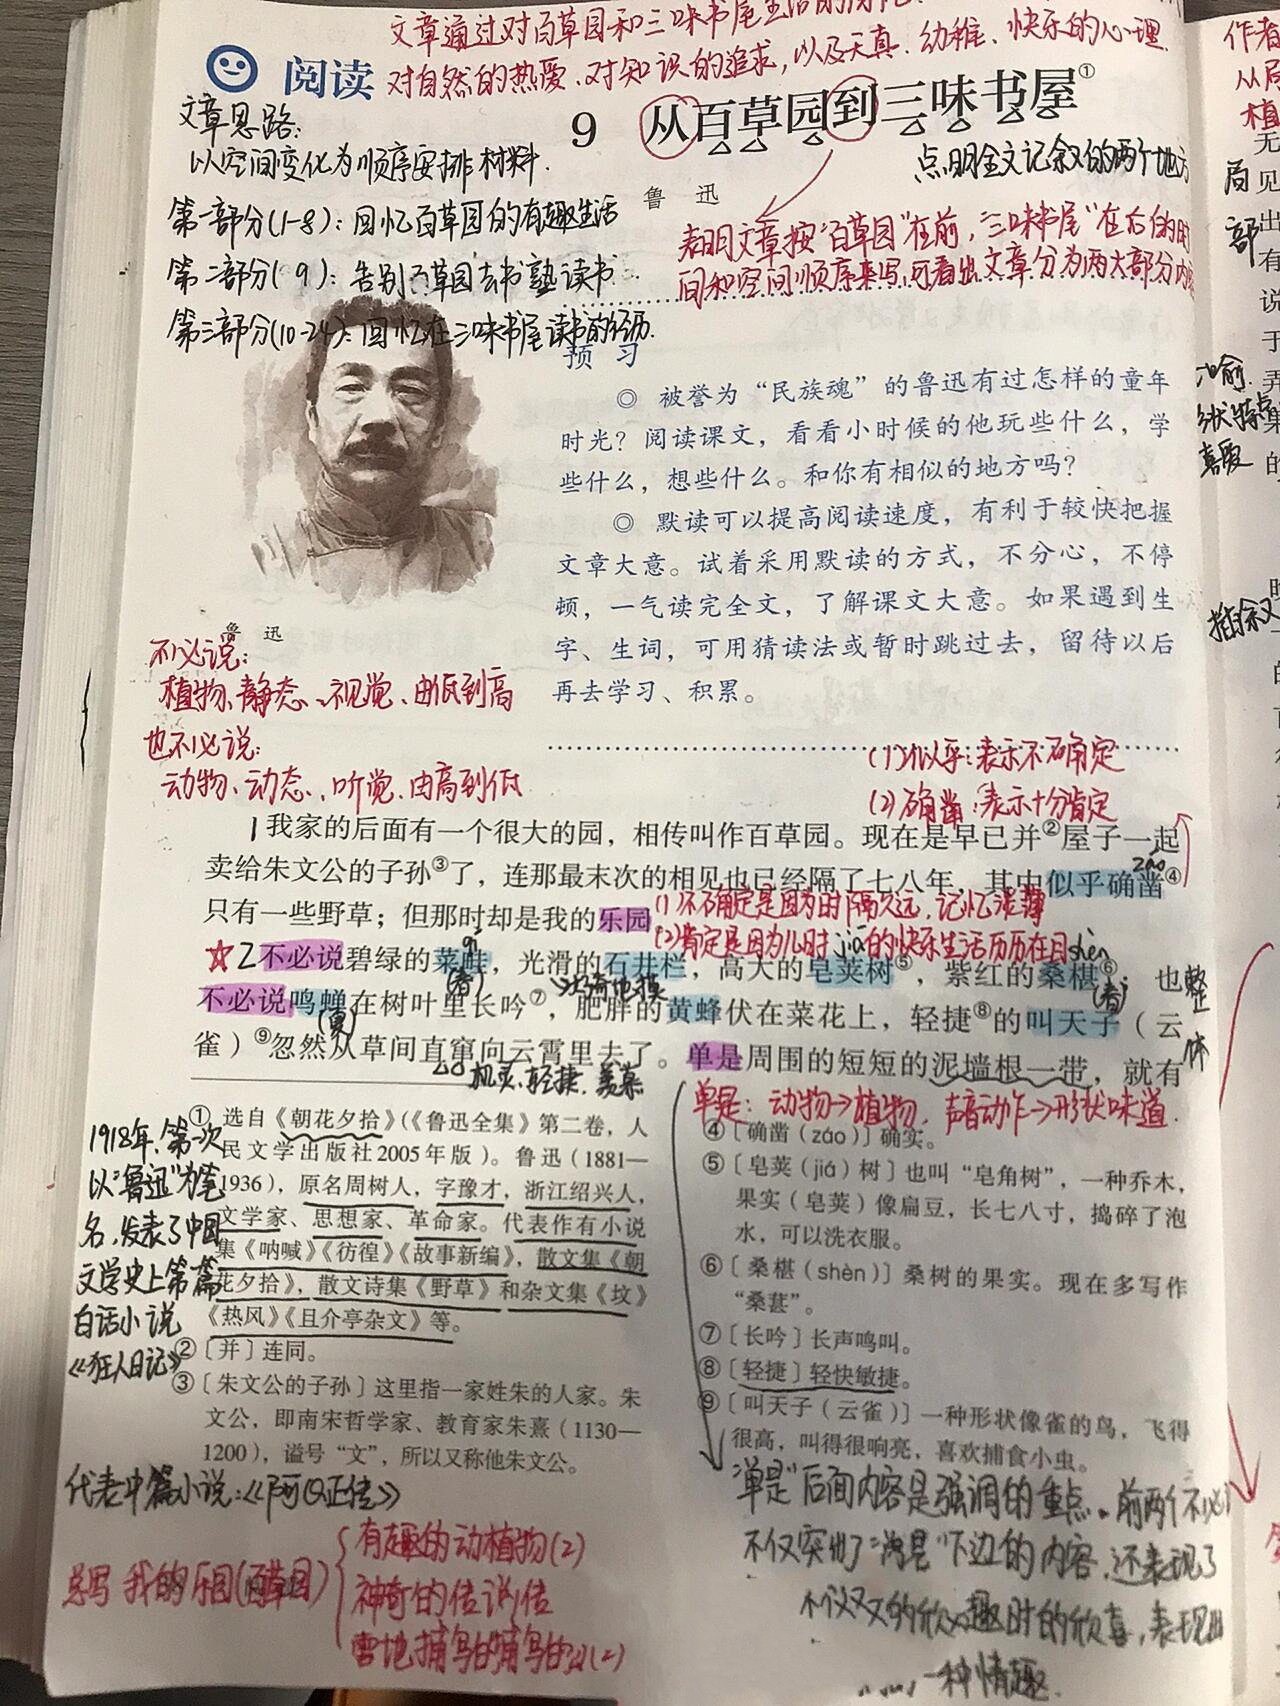 文章通过对百草园和三味书屋生活的
对自然的热爱、对知识的追求,以及天真、幼稚、快乐的心理.
阅读
9 从百草园到三味书屋①
文章思路:
以空间变化为顺序安排材料.
点明全文记叙的两个地方
鲁 迅
第一部分(1-8):回忆百草园的有趣生活
第二部分(9):告别百草园去书塾读书
第三部分(10-24):回忆在三味书屋读书的经历.
表明文章按“百草园”在前,“三味书屋”在后的时
间和空间顺序来写,可看出文章分为两大部分内容
预 习
◎ 被誉为“民族魂”的鲁迅有过怎样的童年
时光?阅读课文,看看小时候的他玩些什么,学
些什么,想些什么。和你有相似的地方吗?
◎ 默读可以提高阅读速度,有利于较快把握
文章大意。试着采用默读的方式,不分心,不停
顿,一气读完全文,了解课文大意。如果遇到生
字、生词,可用猜读法或暂时跳过去,留待以后
再去学习、积累。
鲁 迅
不必说:
植物、静态、视觉、由低到高
也不必说:
动物、动态、听觉、由高到低
(1)似乎:表示不确定
(2)确凿:表示十分肯定
1我家的后面有一个很大的园,相传叫作百草园。现在是早已并②屋子一起
卖给朱文公的子孙③了,连那最末次的相见也已经隔了七八年,其中似乎确凿④
záo
只有一些野草;但那时却是我的乐园
(1)不确定是因为时隔久远,记忆淡薄
(2)肯定是因为儿时的快乐生活历历在目
qí
jiá
shèn
☆2不必说碧绿的菜畦,光滑的石井栏,高大的皂荚树⑤,紫红的桑椹⑥;也
(春)
(春)
不必说鸣蝉在树叶里长吟⑦,肥胖的黄蜂伏在菜花上,轻捷⑧的叫天子(云
(夏)
整体
雀)⑨忽然从草间直窜向云霄里去了。单是周围的短短的泥墙根一带,就有
机灵、轻捷、羡慕
单是:动物→植物,声音动作→形状味道.
① 选自《朝花夕拾》(《鲁迅全集》第二卷,人
民文学出版社2005年版)。鲁迅(1881—
1936),原名周树人,字豫才,浙江绍兴人,
文学家、思想家、革命家。代表作有小说
集《呐喊》《彷徨》《故事新编》,散文集《朝
花夕拾》,散文诗集《野草》和杂文集《坟》
《热风》《且介亭杂文》等。
②〔并〕连同。
③〔朱文公的子孙〕这里指一家姓朱的人家。朱
文公,即南宋哲学家、教育家朱熹(1130—
1200),谥号“文”,所以又称他朱文公。
④〔确凿(záo)〕确实。
⑤〔皂荚(jiá)树〕也叫“皂角树”,一种乔木,
果实(皂荚)像扁豆,长七八寸,捣碎了泡
水,可以洗衣服。
⑥〔桑椹(shèn)〕桑树的果实。现在多写作
“桑葚”。
⑦〔长吟〕长声鸣叫。
⑧〔轻捷〕轻快敏捷。
⑨〔叫天子(云雀)〕一种形状像雀的鸟,飞得
很高,叫得很响亮,喜欢捕食小虫。
1918年,第一次
以“鲁迅”为笔
名,发表了中国
文学史上第一篇
白话小说
《狂人日记》
代表中篇小说:《阿Q正传》
总写 我的乐园(百草园)
有趣的动植物(2)
神奇的传说
雪地捕鸟
“单是”后面内容是强调的重点。前两个不必
不仅突出了“单是”下边的内容,还表现了
时的欣喜,表现出
一种情趣
作者
从局
植
无
局部
见
出
有
说
于
弄
形状特点
喜爱
的